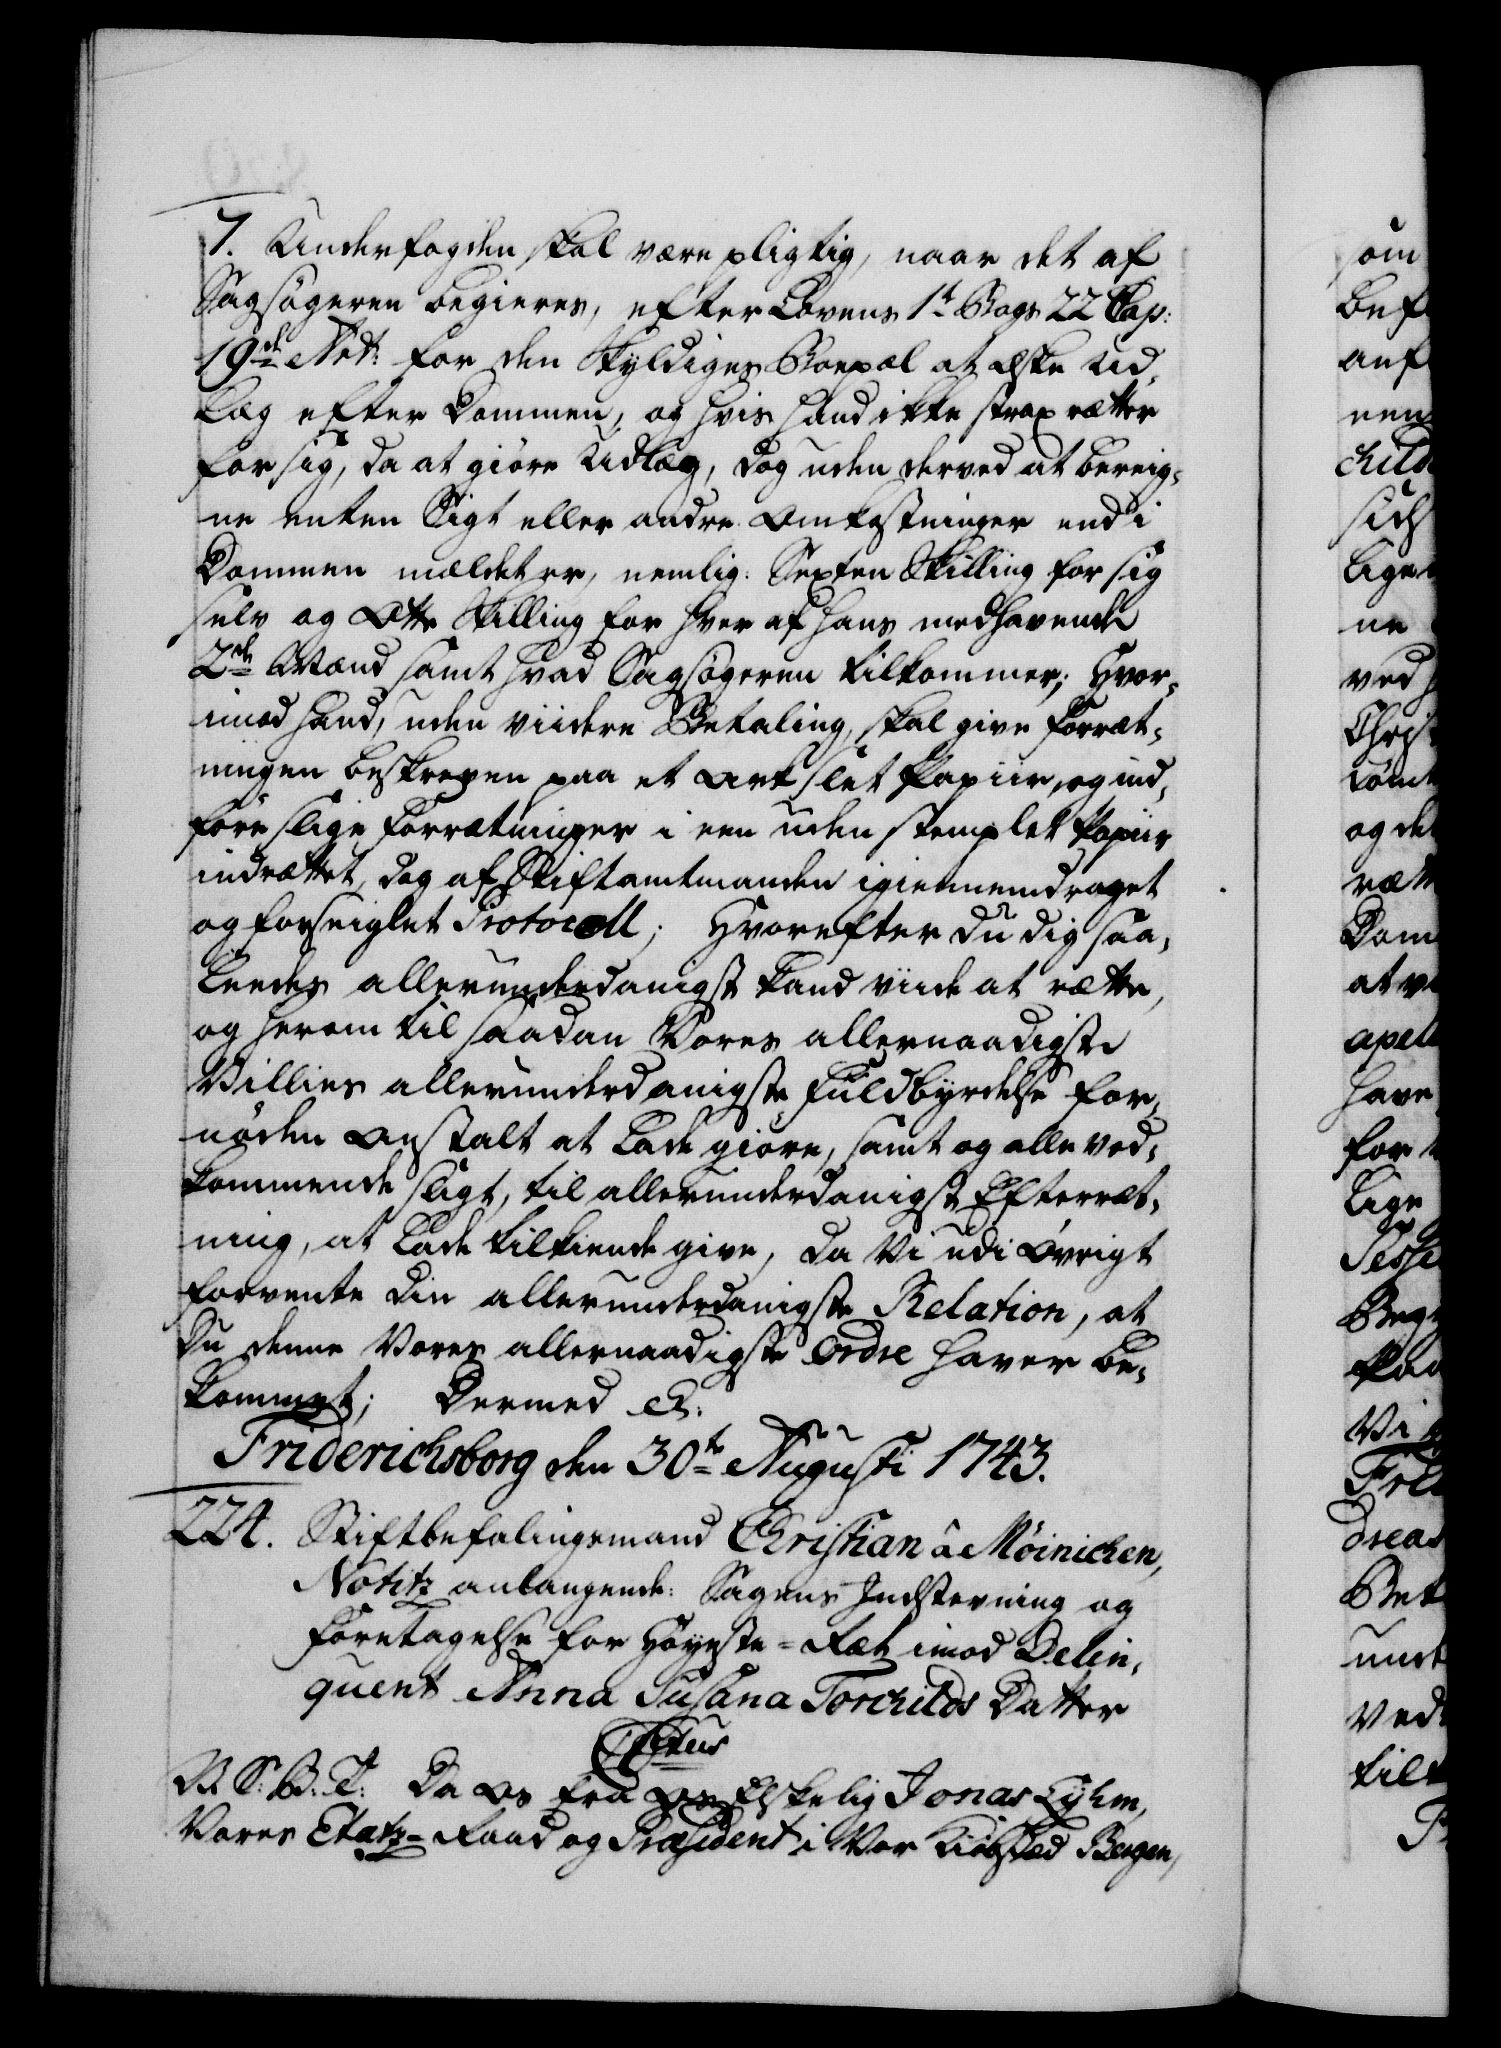 7. Underfogden skal være pligtig, naar det af
Sagsøgeren begieres, efter Lovens 1t Bogs 22 Cap:
19de Art: for den Skyldiges Boepæl at æske Ud,
læg efter Dommen, og hvis hand ikke strax rætter
for sig, da at giøre Udlæg, dog uden derved at bereig,
ne enten Sigt eller andre Omkostninger end i
Dommen mældet er, nemlig: Sexten Skilling for sig
selv og Otte Skilling for hver af hans medhavende
2de Mænd samt hvad Sagsøgeren tilkommer; Hvor,
imod hand, uden viidere Betaling, skal give Forræt,
ningen beskreven paa et Ark slet Papiir, og ind,
føre slige Forrætninger i een uden stemplet Papiir
indrættet, dog af Stiftamtmanden igiennemdraget
og forseiglet Protocoll; Hvorefter du dig saa,
leedes allerunderdanigst kand viide at rætte,
og herom til saadan Vores allernaadigste
Villies allerunderdanigste Fuldbyrdelse for,
nøden Anstalt at lade giøre, samt og alle ved,
kommende sligt, til allerunderdanigst Efterræt,
ning, at lade tilkiende give, da Vi udi øvrigt
forvente din allerunderdanigste Relation, at
du denne Vores allernaadigste Ordre haver be,
kommet; Dermed &:
Friderichsborg den 30te Augusti 1743.
224. Stiftbefalingsmand Christian â Møinichen,
Notitz anlangende: Sagens Indstevning og
Foretagelse for Høyeste-Ræt imod Delin,
quent Anna Susana Torchilds Datter
Sextus
V. S: G: T: Da Os fra Os Elskelig Jonas Lyhm,
Vores Etatz-Raad og Præsident i Vor Kiøbsted Bergen,